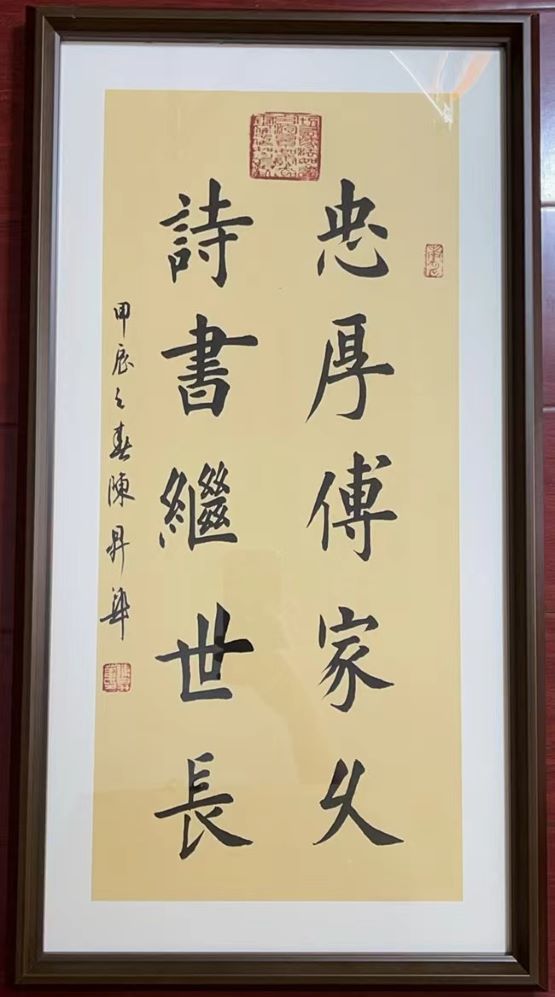 忠厚傅家久
詩書繼世長
甲辰之春陳昇華